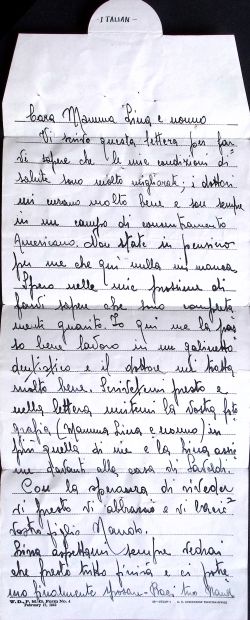 ITALIAN
Cara Mamma Lina e nonno
Vi scrivo questa lettera per far
vi sapere che le mie condizioni di
salute sono molto migliorate, i dottori
mi curano molto bene e son sempre
in un campo di concentramento
Americano. Non state in pensiero
per me che qui nulla mi manca
Spero nelle mie prossime di
farvi sapere che sono completa
mente guarito. Io qui me la pas
so bene lavoro in un gabinetto
dentistico e il dottore mi tratta
molto bene. Scrivetemi presto e
nella lettera unitemi la vostra foto
grafia (Mamma Lina e nonno) in
più quella di me e la Lina assie
me davanti alla casa di
Con la speranza di riveder
vi presto vi abbraccio e vi bacio
vostro figlio
Lina aspettami sempre vedrai
che presto tutto finirà e ci potre
mo finalmente sposare. Baci tuo
W. D., P. M. G. Form No. 4